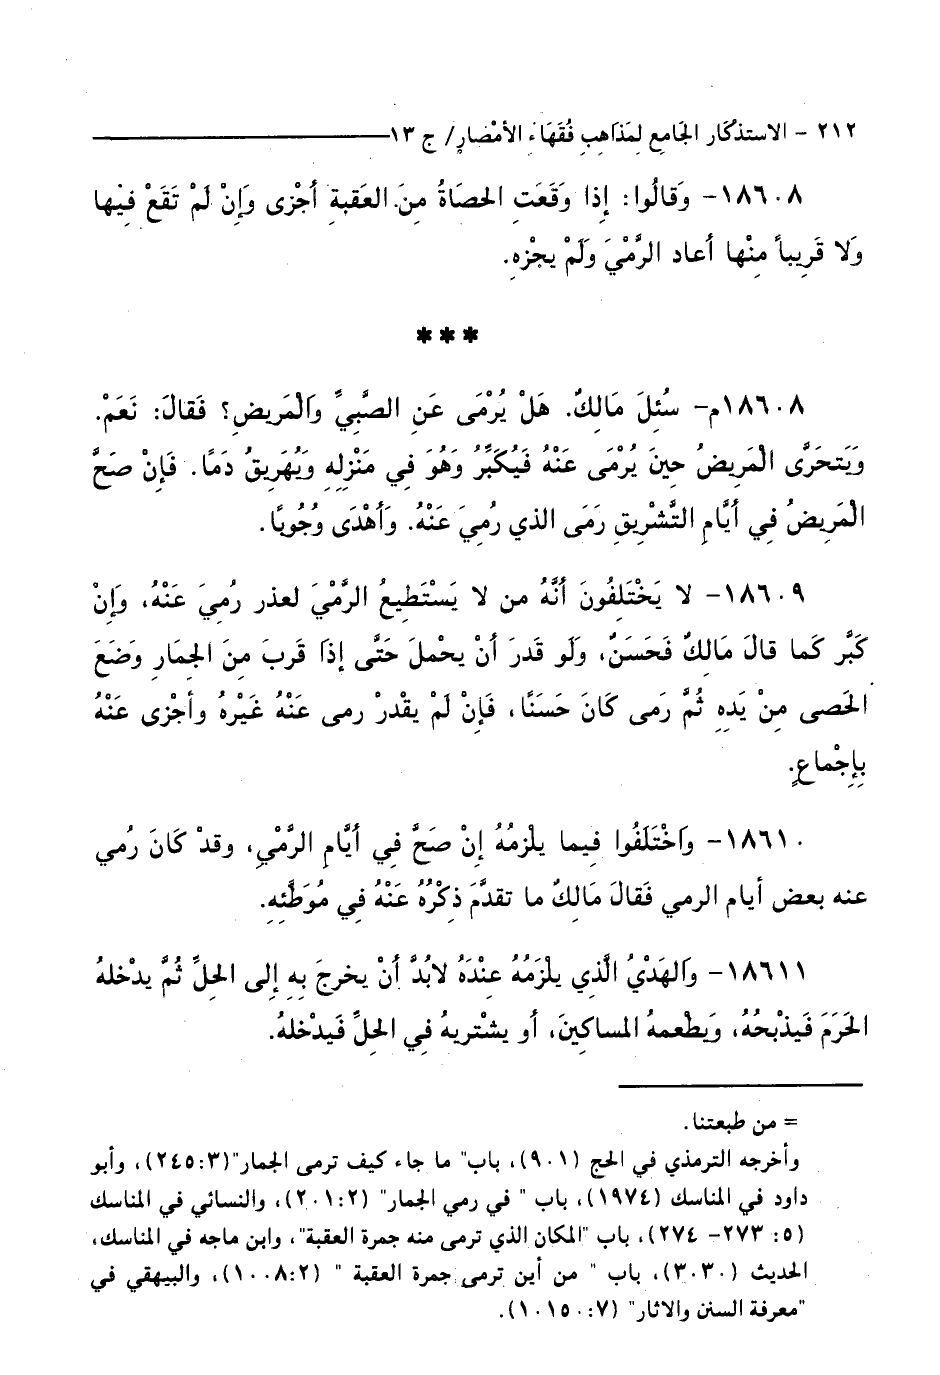 ٢١٢ - الاستذكار الجامع لمذاهب فُقَهَاءِ الأمْصَارِ/ ج ١٣
١٨٦٠٨- وَقالُوا: إذا وَقَعَتِ الحصَاةُ مِنَ العَقبةِ أجْزى وَإنْ لَمْ تَقَعْ فِيْها
وَلا قَرِيباً مِنْها أعاد الرَّمْيَ وَلَمْ يجْزهِ.
***
١٨٦٠٨م- سُئِلَ مَالِكٌ. هَلْ يُرْمَى عَنِ الصَّبِيِّ وَالْمَرِيضِ؟ فَقَالَ: نَعَمْ.
وَيَتحَرَّى الْمَرِيضُ حِينَ يُرْمَى عَنْهُ فَيُكَبِّرُ وَهُوَ فِي مَنْزِلِهِ وَيُهَرِيقُ دَمًا. فَإنْ صَحَّ
الْمَرِيضُ فِي أيَّامِ التَّشْرِيقِ رَمَى الذي رُمِيَ عَنْهُ. وَأهْدَى وُجُوبًا.
١٨٦٠٩- لا يَخْتَلِفُونَ أنَّهُ من لا يَسْتَطِيعُ الرَّمْيَ لعذر رُمِيَ عَنْهُ، وَإنْ
كَبَّر كَما قالَ مَالِكٌ فَحَسَنٌ، وَلَو قَدرَ أنْ يحْملَ حَتَّى إذَا قَربَ مِنَ الجِمَارِ وَضَعَ
الحَصى مِنْ يَدِهِ ثُمَّ رَمَى كَانَ حَسَنًا، فَإنْ لَمْ يقْدرْ رمى عَنْهُ غَيْرهُ وأجْزى عَنْهُ
بِإِجْماعٍ.
١٨٦١٠- وَاخْتَلَفُوا فِيما يلْزمُهُ إنْ صَحَّ فِي أيَّامِ الرَّمْيِ، وقدْ كَانَ رُمي
عنه بعض أيام الرمي فَقالَ مَالِكٌ ما تقدَّمَ ذِكْرُهُ عَنْهُ فِي مُوَطَّئِهِ.
١٨٦١١- وَالهَدْيُ الَّذي يلْزَمُهُ عِنْدَهُ لابُدَّ أنْ يخرجَ بِهِ إلى الحِلِّ ثُمَّ يدْخلهُ
الحَرَمَ فَيذْبحُهُ، وَيَطْعمهُ المساكِينَ، أو يشْتريهُ فِي الحلِّ فَيدْخلهُ.
= من طبعتنا.
وأخرجه الترمذي في الحج (٩٠١)، باب" ما جاء كيف ترمى الجمار"(٢٤٥:٣)، وأبو
داود في المناسك (١٩٧٤)، باب " في رمي الجمار" (٢٠١:٢)، والنسائي في المناسك
(٥: ٢٧٣- ٢٧٤)، باب "المكان الذي ترمى منه جمرة العقبة"، وابن ماجه في المناسك،
الحديث (٣٠٣٠)، باب " من أين ترمى جمرة العقبة " (١٠٠٨:٢)، والبيهقي في
"معرفة السنن والاثار" (١٠١٥٠:٧).